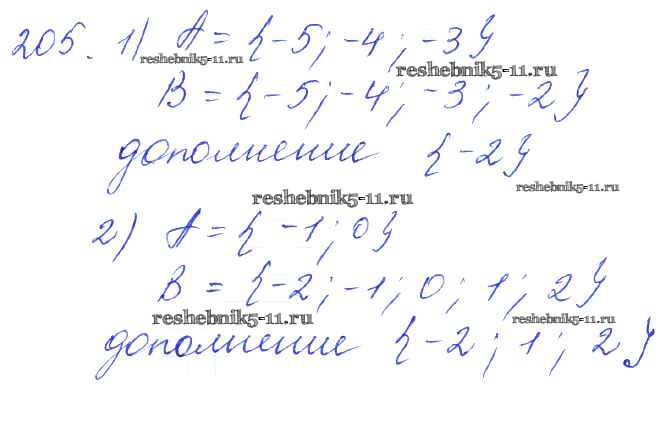 205. 1) A = {-5; -4; -3}
reshebnik5-11.ru
reshebnik5-11.ru
B = {-5; -4; -3; -2}
дополнение {-2}
reshebnik5-11.ru
reshebnik5-11.ru
2) A = {-1; 0}
B = {-2; -1; 0; 1; 2}
reshebnik5-11.ru
reshebnik5-11.ru
дополнение {-2; 1; 2}